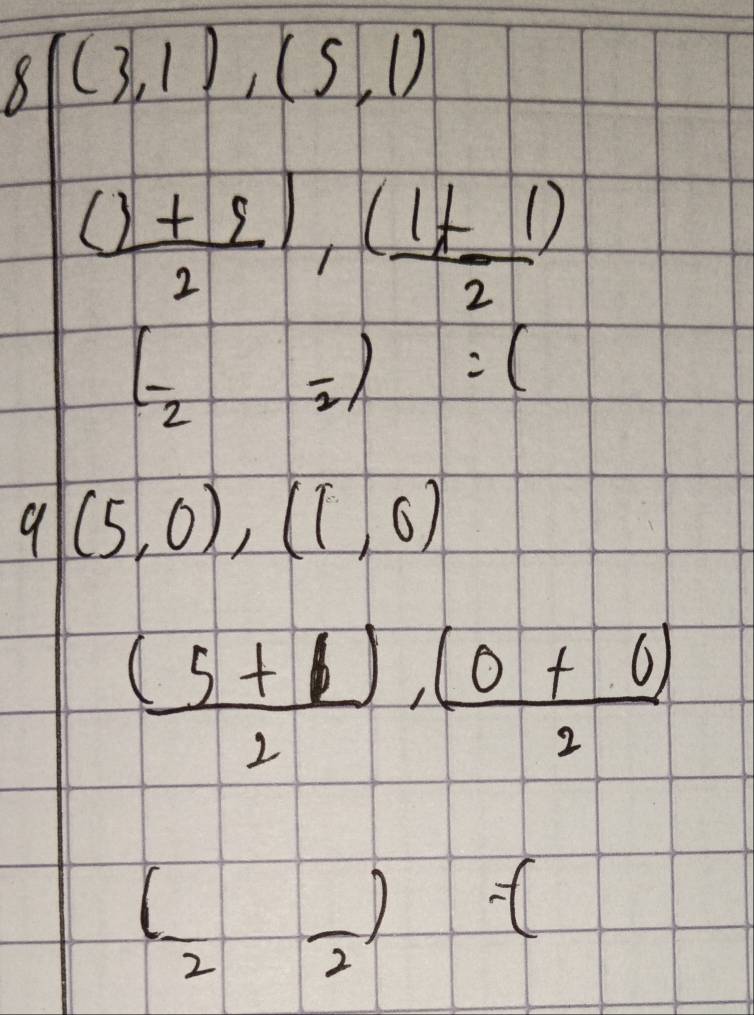 8 (3,1), (5,1)
(3 + 5), (1 + 1)
2 2
(— —) = (
2 2
9 (5,0), (1,0)
(5 + 1), (0 + 0)
2 2
(— —) = (
2 2